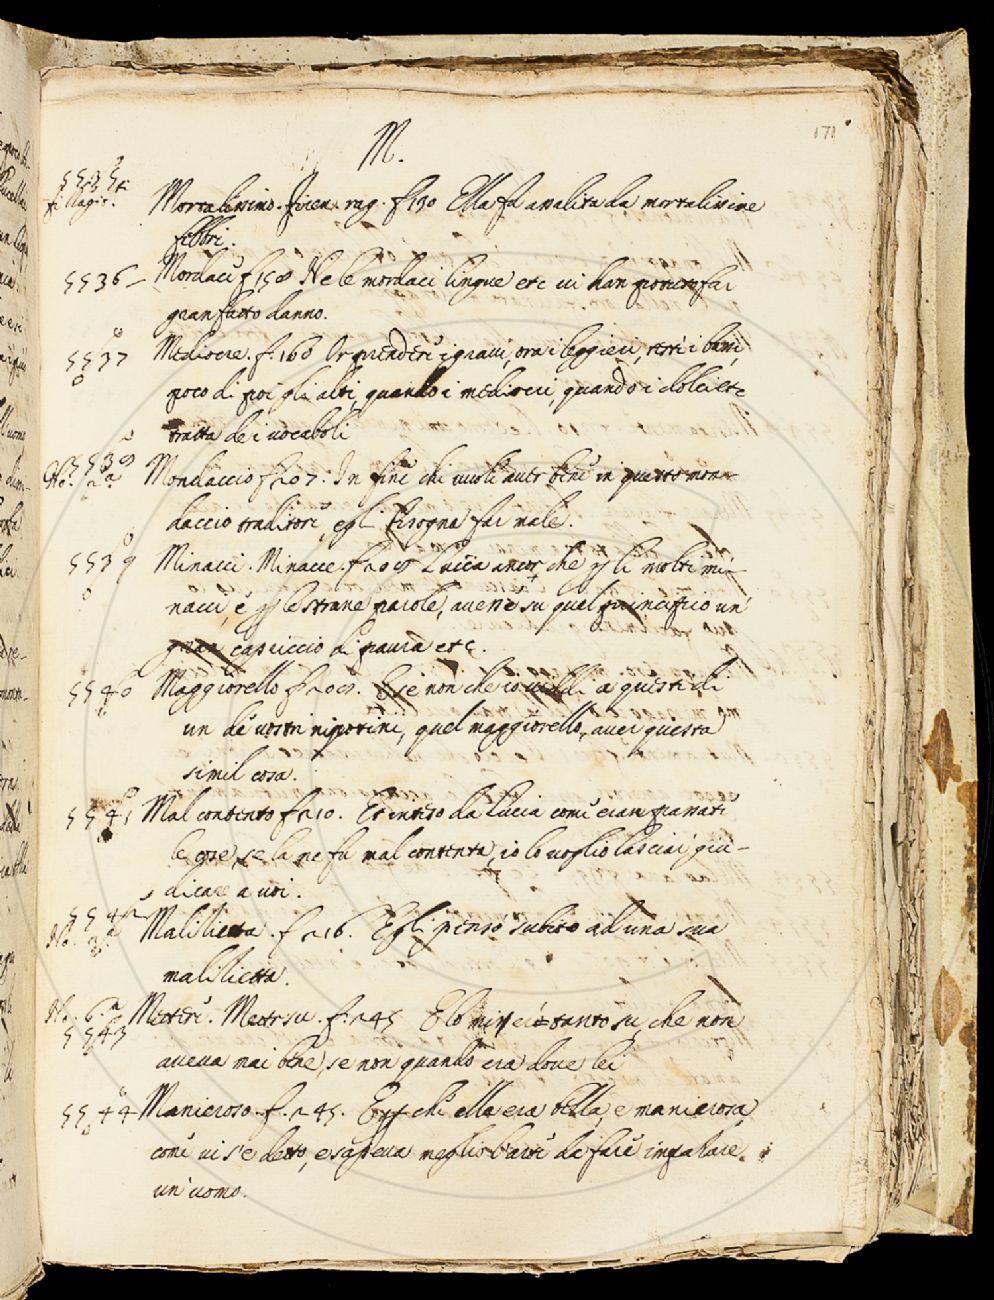 171
M.
5535
Mortalissimo. Firen. rag. f. 130 Ella fu assalita da mortalissime
febbri.
5536 Mordaci f. 158 Ne le mordaci lingue etc vi han potuto far
gran fatto danno.
5537 Mediocre. f. 160 Or prenderei i gravi, ora i leggieri, testé i bassi,
poco di poi gli alti, quando i mediocri, quando i dolci etc
tratta de i vocaboli
5538 Mondaccio f. 207. In fine chi vuole aver bene in questo mon-
No. 2a daccio traditore, egli bisogna far male.
5539 Minacci. Minacce. f. 209 Lucia ancor che per li molti mi-
nacci, e per le strane parole, avesse su quel principio un
gran capriccio di paura etc.
5540 Maggiorello f. 209. E se non che io viddi a questi dì
un de vostri nipotini, quel maggiorello, aver questa
simil cosa.
5541 Mal contento f. 210. Et inteso da Lucia come eran passate
le cose, se la ne fu mal contenta, io lo voglio lasciar giu-
dicare a voi.
5542
No. 3a Malizietta. f. 216. Egli pensò subito ad una sua
malizietta.
No. 6.a Mettere. Mettersu. f. 245 E lo tanto su, che non
5543 aveva mai bene, se non quando era dove lei
5544 Manieroso. f. 245. che ella era bella, e manierosa
come vi s'è detto, e sapeva meglio l'arte di fare impazzare
un' uomo.